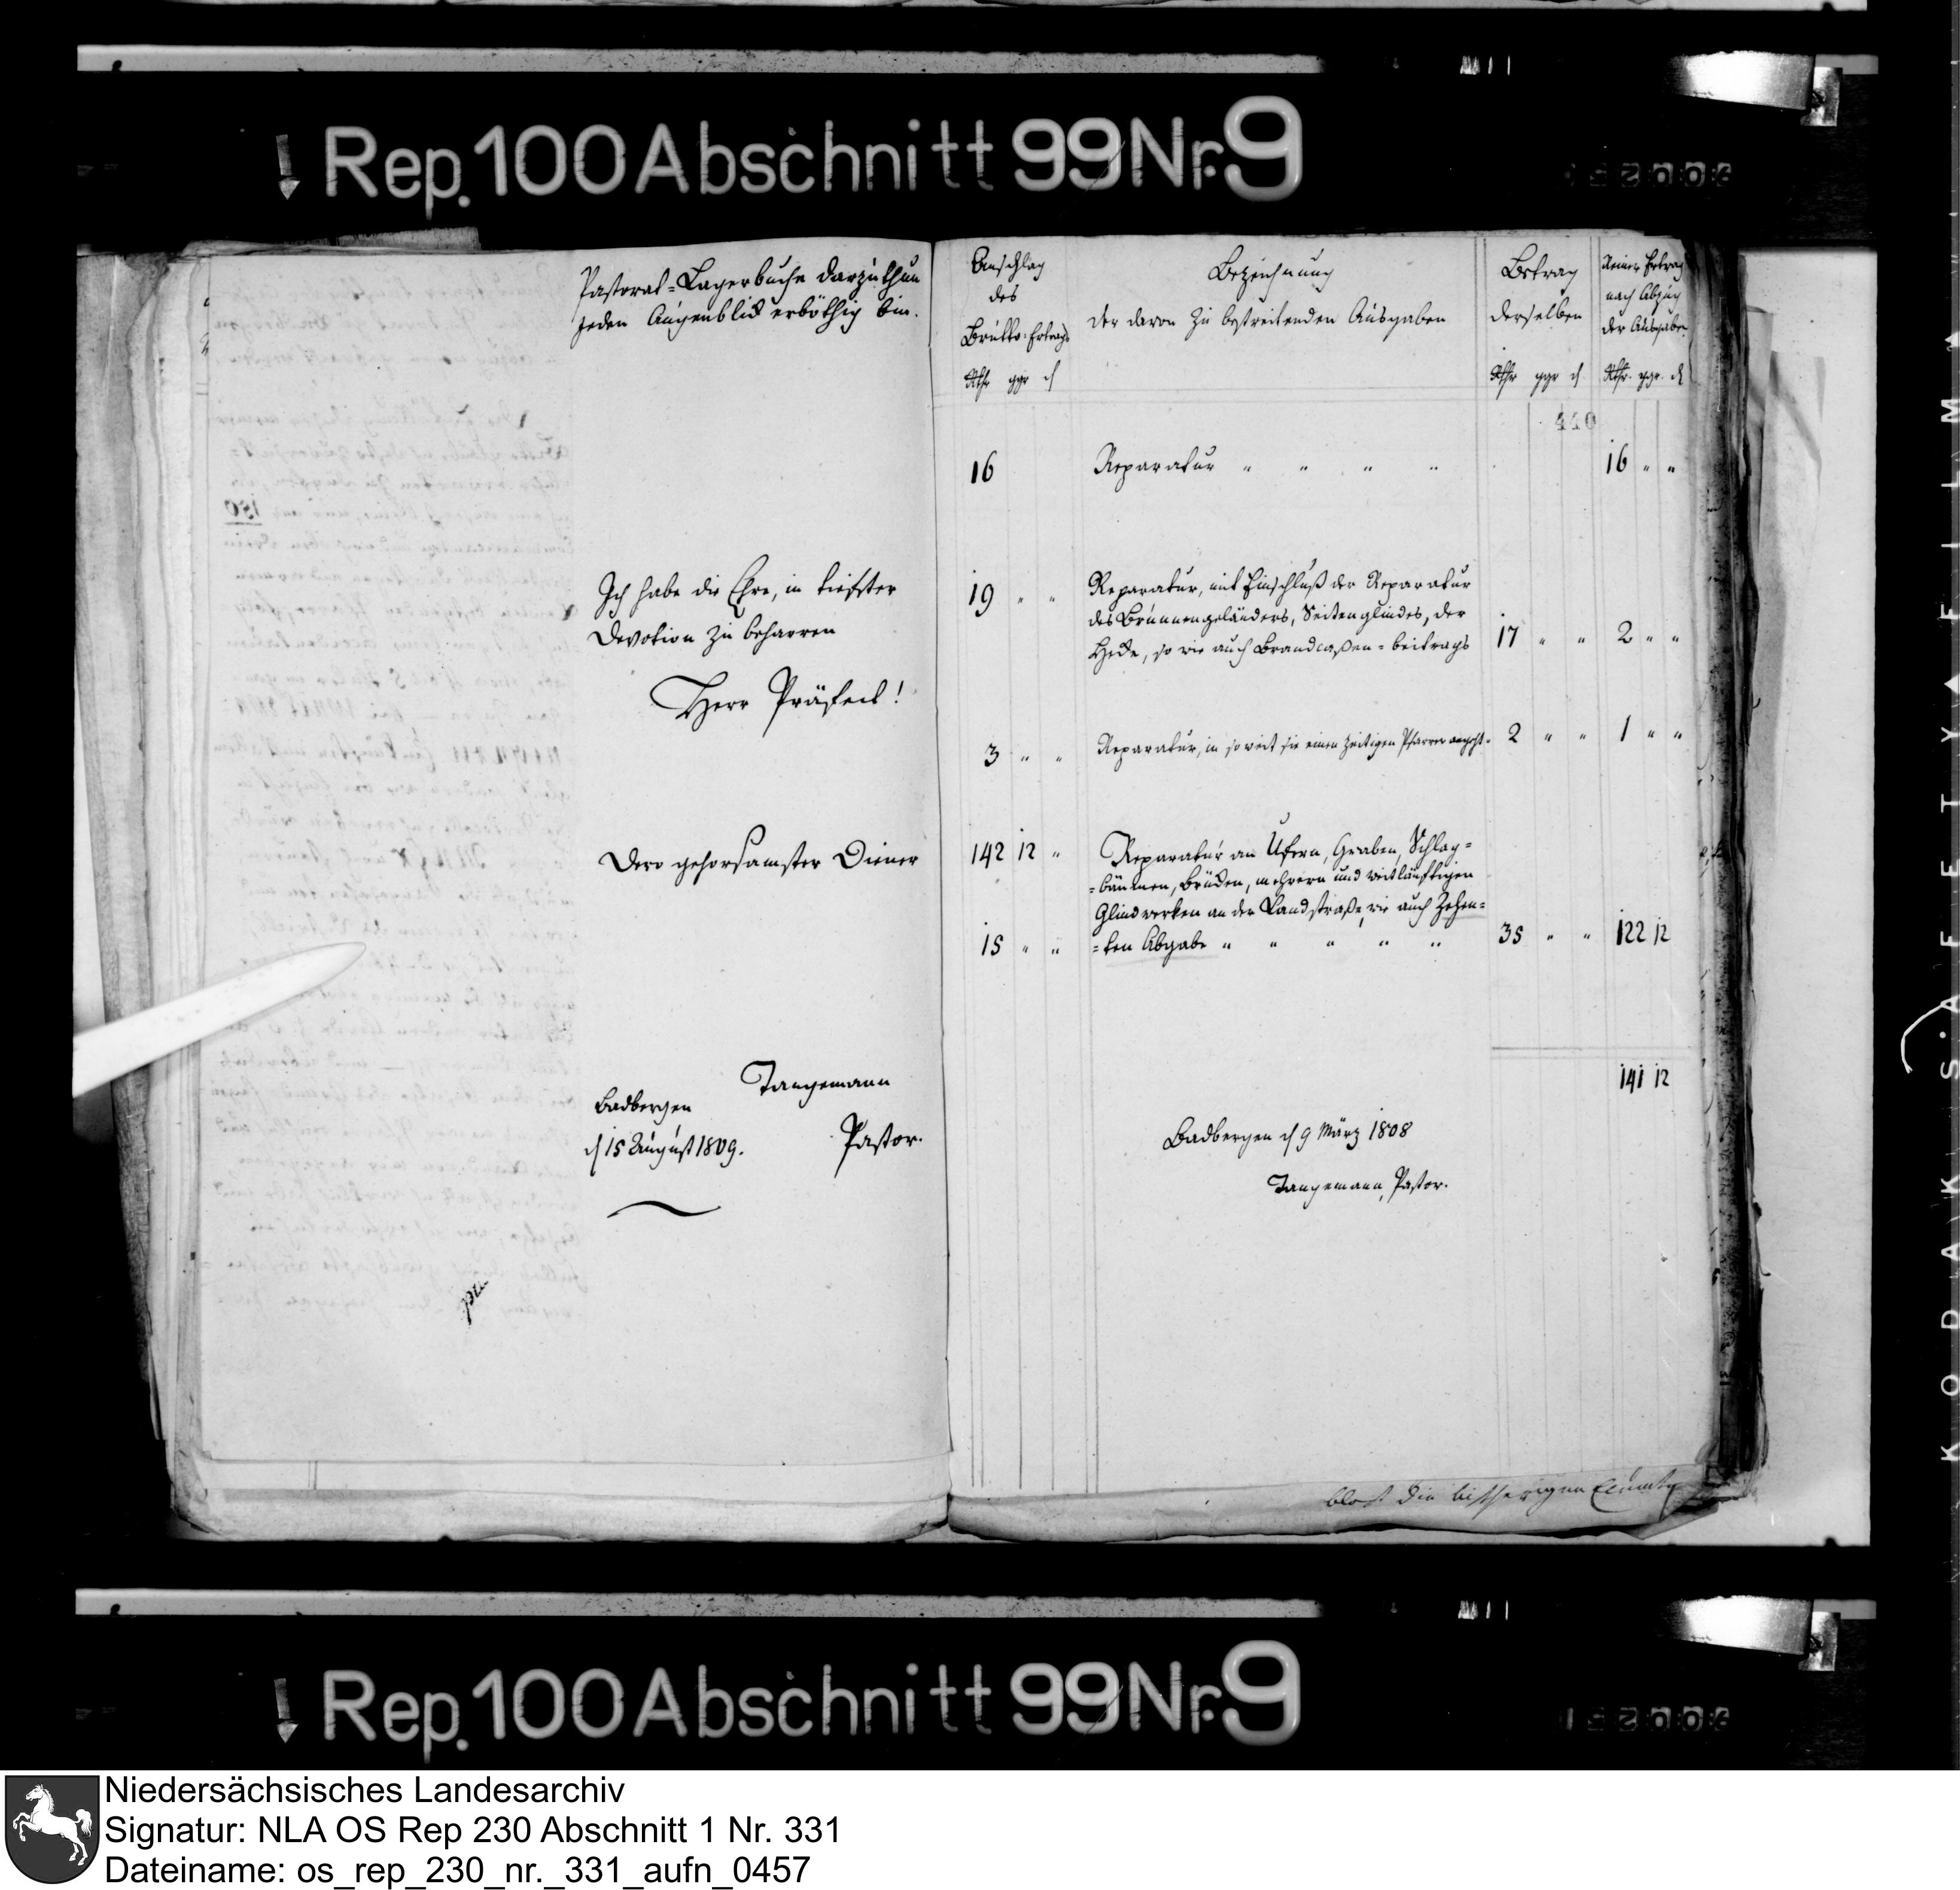 Rep. 100 Abschnitt 99 Nr. 9
Pastorat-Lagerbuche darzuthun
jeden Augenblick erböthig bin.
Ich habe die Ehre, in tiefster
Devotion zu beharren
Herr Präfect!
Dero gehorsamster Diener
Tangemann
Badbergen
d 15 August 1809.
Pastor.
Anschlag
des
Brutto-Ertrags
Rthr ggr d
Bezeichnung
der davon zu bestreitenden Ausgaben
Betrag
derselben
Rthr ggr d
Reiner Ertrag
nach Abzug
der Ausgaben
Rthr. ggr. d
440
16 Reparatur " " " " 16 " "
19 " " Reparatur, mit Einschluß der Reparatur
des Brunnengeländers, Seitenglindes, der
Hecke, so wie auch Brandcaßen-beitrags 17 " " 2 " "
3 " " Reparatur, in so weit sie einen zeitigen Pfarrer angeht- 2 " " 1 " "
142 12 " Reparatur an Ufern, Graben, Schlag=
=bäumen, Brücken, mehrern und weitläuftigen
Glindwerken an der Landstraße, wie auch Zehen=
15 " " =ten Abgabe " " " " " 35 " " 122 12
141 12
Badbergen d 9 März 1808
Tangemann, Pastor.
bloß die bisherigen
KODAK SAFETY FILM
Rep. 100 Abschnitt 99 Nr. 9
Niedersächsisches Landesarchiv
Signatur: NLA OS Rep 230 Abschnitt 1 Nr. 331
Dateiname: os_rep_230_nr._331_aufn_0457